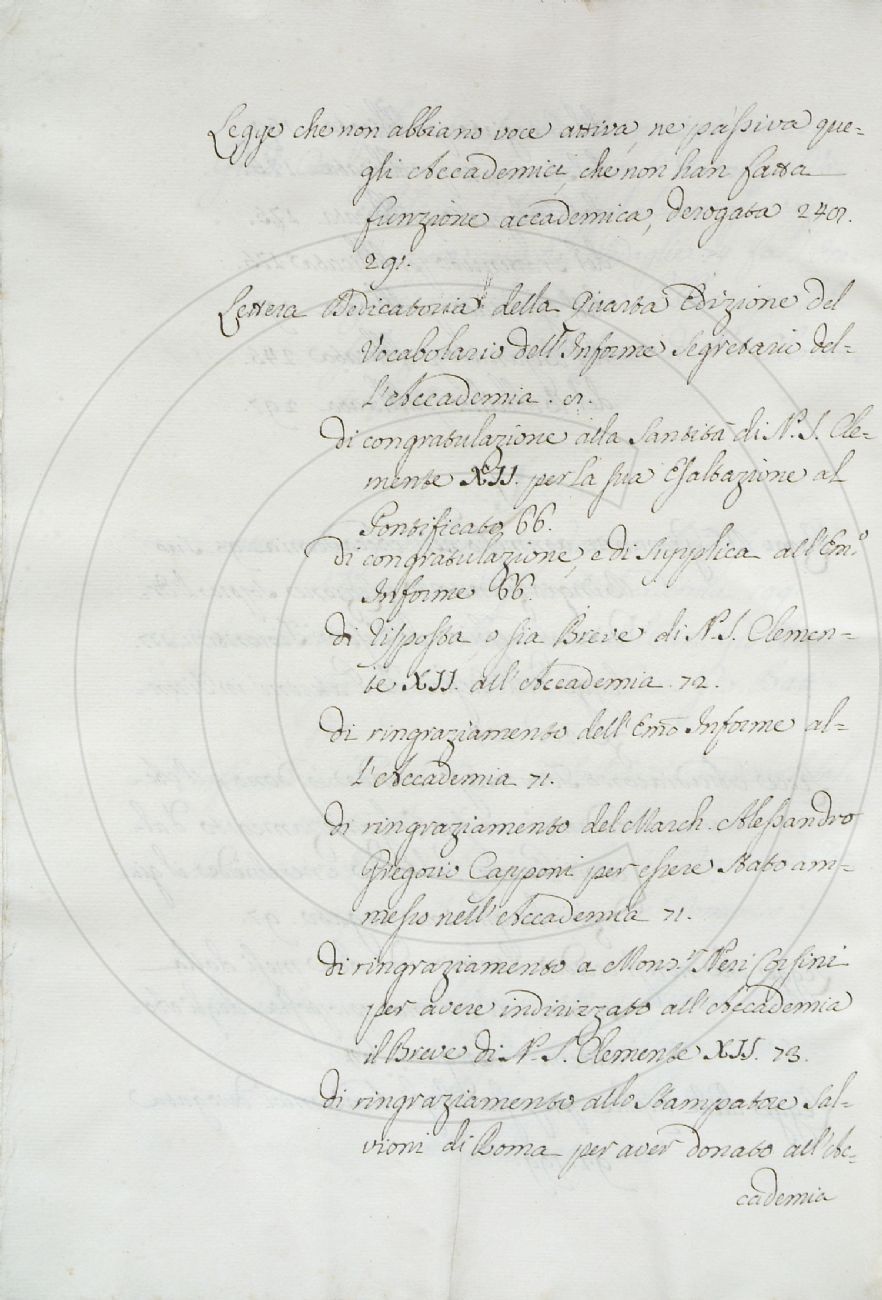 Legge che non abbiano voce attiva, ne passiva que=
gli Accademici, che non han fatta
funzione accademica, derogata 240.
291.
Lettera Dedicatoria della Quarta Edizione del
Vocabolario dell'Informe Segretario del=
l'Accademia. 61.
di congratulazione alla Santità di N. S. Cle=
mente XII. per la sua Esaltazione al
Pontificato 66.
di congratulazione, e di supplica all'Em.o
Informe 66.
di risposta o sia Breve di N. S. Clemen=
te XII. all'Accademia. 72.
di ringraziamento dell'Emo Informe al=
l'Accademia 71.
di ringraziamento del March. Alessandro
Gregorio Capponi per essere stato am=
messo nell'Accademia 71.
di ringraziamento a Mons.r Neri Corsini
per avere indirizzato all'Accademia
il Breve di N. S. Clemente XII. 73.
di ringraziamento allo Stampatore Sal=
vioni di Roma per aver donato all'Ac=
cademia